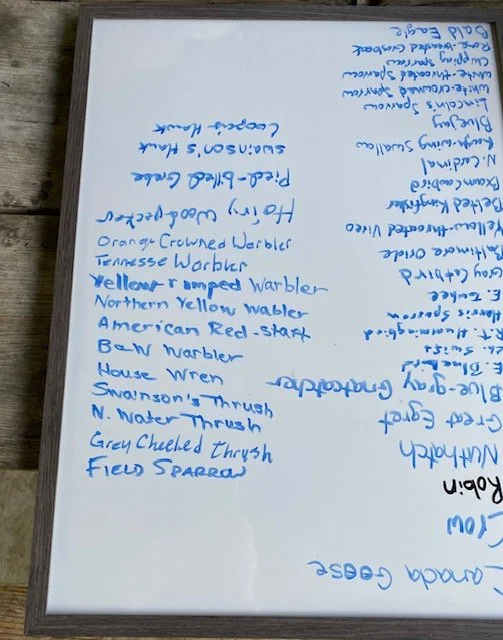 Canada Goose
Crow
Robin
Nuthatch
Great Egret
Blue-gray Gnatcatcher
E. Bluebird
Ch. Swift
R.T. Hummingbird
Harris's Sparrow
E.
Gray Catbird
Baltimore Oriole
Yellow-throated Vireo
Belted Kingfisher
Brown Cowbird
N. Cardinal
Rough-wing Swallow
Bluejay
Lincoln's Sparrow
White-crowned Sparrow
White-throated Sparrow
Chipping Sparrow
Rose-breasted Grosbeak
Bald Eagle
Hairy Woodpecker
Pied-billed Grebe
Swainson's Hawk
Cooper's Hawk
Orange Crowned Warbler
Tennesse Warbler
Yellow rumped Warbler
Northern Yellow Wabler
American Red-start
B&W Warbler
House Wren
Swainson's Thrush
N. Water Thrush
Grey Cheeked thrush
FIELD SPARROW